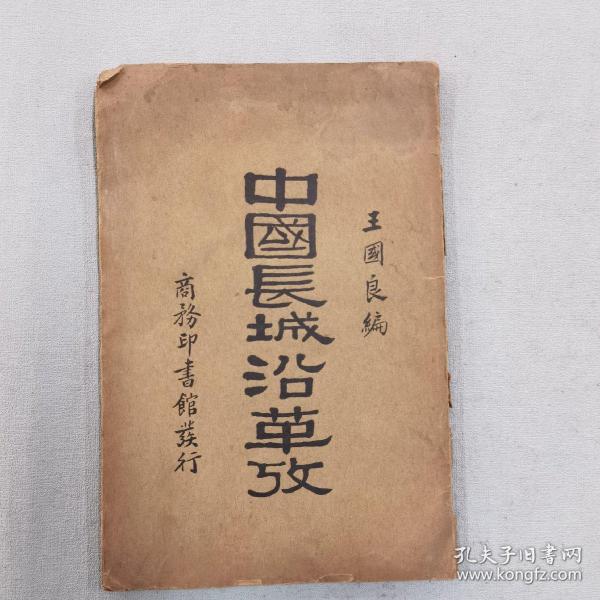 王國良編
中國長城沿革攷
商務印書館發行
孔夫子旧書网
www.kongfz.com